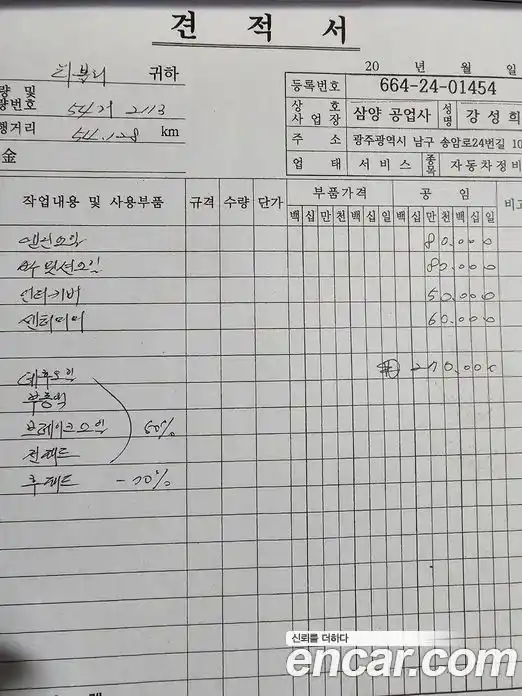 견 적 서
귀하
20 년 월 일
량 및
량번호 54거 2113
등록번호 664-24-01454
상 호
사 업 장 삼양 공업사 성명 강성희
행거리 54.128 km
주 소 광주광역시 남구 송암로24번길 10
金
업 태 서비스 종목 자동차정비
작업내용 및 사용부품 규격 수량 단가 부품가격 공 임 비고
백 십 만 천 백 십 일 백 십 만 천 백 십 일
엔진오일 80.000
미션오일 80.000
언더카바 50.000
센터 60.000
270.000
데후오일
부동액
브레이크오일 60%
전패드
후패드 - 70%
신뢰를 더하다
encar.com